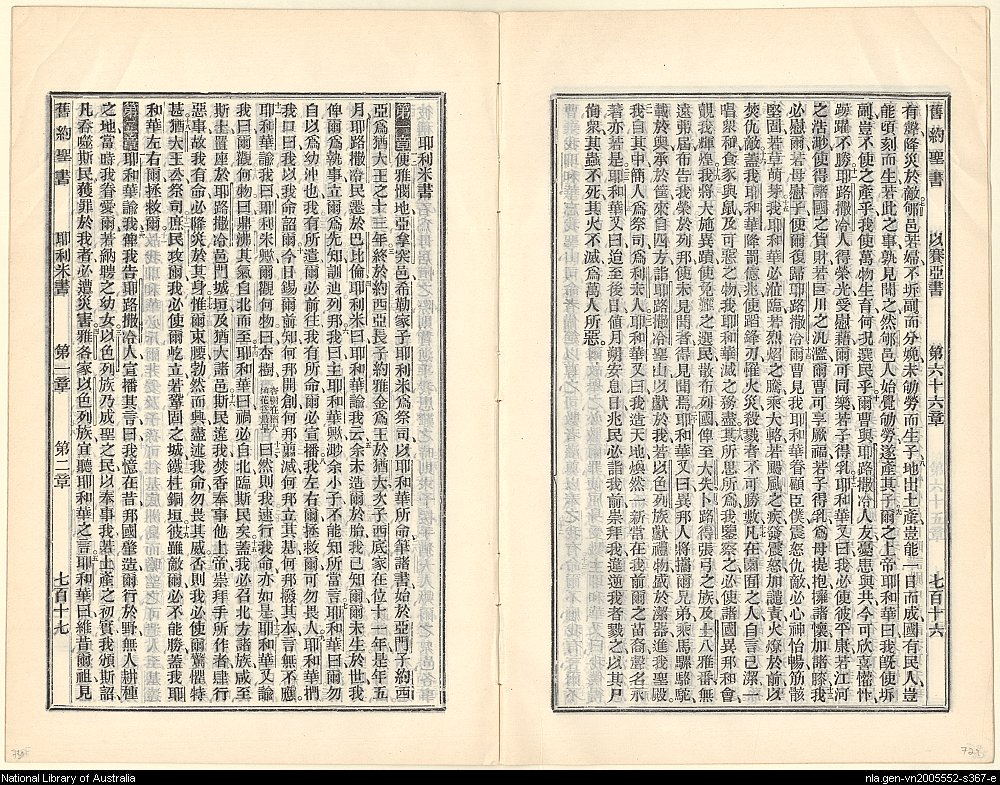 舊約聖書 以賽亞書 第六十六章 七百十六
有聲降災於敵郇邑若婦不坼副而分娩未劬勞而生子地出土產豈能一日而成國有民人豈
能頃刻而生若此之事孰見聞之然郇邑人始覺劬勞遂產其子爾之上帝耶和華曰我旣使坼
副豈不使之產乎我使萬物生育何況選民乎爾曹與耶路撒冷人友憂患與共今可欣喜懽忭
踴躍不勝耶路撒冷人得榮光受慰藉爾可同樂若子得乳耶和華又曰我必使彼平康若江河
之浩渺使得諸國之貨財若巨川之汎濫爾曹可享厥福若子得乳爲母提抱擁諸懷加諸膝我
必慰爾若母慰子使爾復歸耶路撒冷爾曹見我耶和華眷顧臣僕震怒仇敵必心神怡暢筋骸
堅固若草萌芽我耶和華必涖臨若烈焰之騰乘大輅若颶風之疾發震怒加譴責火燎於前以
焚仇敵蓋我耶和華降罰億兆使蹈鋒刃權火災殺戮者不可勝數凡在園囿之人自言已潔一
唱衆和食豕與鼠及可惡之物我耶和華滅之務盡其所思所爲我鑒察之必使諸國異邦和會
覩我輝煌我將大施異蹟使冤離之選民散布列國俾至大失卜路得張弓之族及土八雅番無
遠弗屆布告我榮於列邦使未見聞者得見聞焉耶和華又曰異邦人將攜爾兄弟乘馬騾駱駝
載於輿承於筐來自四方詣耶路撒冷聖山以獻於我昔以色列族獻禮物盛於潔器進我聖殿
我自其中簡人爲祭司爲利未人耶和華又曰我造天地煥然一新常在我前爾之苗裔爾名亦
若是耶和華又曰迨至後日值月朔安息日兆民必詣我前崇拜我違逆我者戮之以其尸
偏衆其蟲不死其火不滅爲萬人所惡
舊約聖書 耶利米書 第一章 第二章 七百十七
耶利米書
第一章
便雅憫地亞拿突邑希勒家子耶利米爲祭司以耶和華所命筆諸書始於亞門子約西
亞爲猶大王之十三年終於約西亞長子約雅金爲王於猶大次子西底家在位十一年是年五
月耶路撒冷民遷於巴比倫耶利米曰耶和華諭我云余未造爾於胎我已知爾爾未生於世我
俾爾爲執事立爾爲先知訓迪列邦我曰主耶和華歟渺余小子不能知所當言耶和華曰爾勿
自以爲幼沖也我有所遣爾必前往我有所命爾必宣播我左右爾拯救爾可勿畏人耶和華捫
我口曰我以我命詔爾今日錫爾前知何邦開創何邦翦滅何邦立其基何邦撥其本言無不應
耶和華諭我曰耶利米歟爾觀何物曰杏樹曰然則我速行我命亦如是耶和華又諭
我曰爾觀何物曰鼎沸其氣自北而至耶和華曰禍必自北臨斯民矣蓋我必召北方諸族咸至
斯土置座於耶路撒冷邑門城垣及猶大諸邑斯民違我焚香奉事他上帝崇拜手所作者肆行
惡事故我有命必降災於其身惟爾束腰勃然而興盡述我命勿畏其威否則我必使爾驚懼特
甚猶大王公祭司庶民攻爾我必使爾屹立若鞏固之城鐵柱銅垣彼雖敵爾必不能勝蓋我耶
和華左右爾拯救爾
第二章
耶和華諭我俾我告耶路撒冷人宣播其言曰我憶在昔邦國肇造爾行於野無人耕種
之地當時我眷愛爾若納聘之幼女以色列族乃成聖之民以奉事我若土產之初實我頒斯詔
凡呑噬斯民獲罪於我者必遭災害雅各家以色列族宜聽耶和華之言耶和華曰維昔爾祖見
National Library of Australia
nla.gen-vn2005552-s367-e